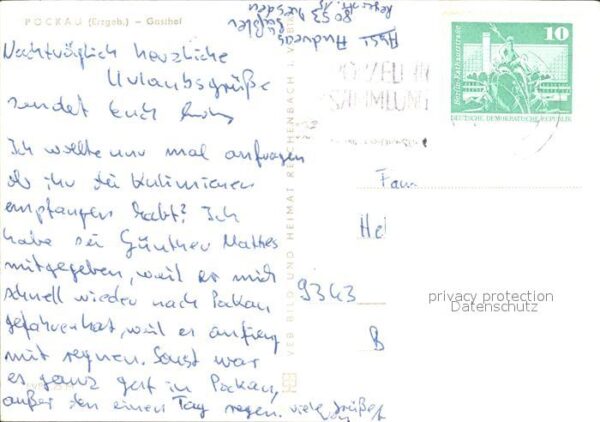 POCKAU (Erzgeb.) — Gasthof
8053 Dresden
10
Berlin-Rathausstraße
DEUTSCHE DEMOKRATISCHE REPUBLIK
SAMMLUNG
Nachträglich herzliche
Urlaubsgrüße
sendet Euch
Ich wollte nur mal anfragen
ob ihr die
empfangen habt? Ich
habe sie Günther Mattes
mitgegeben, weil er mich
schnell wieder nach Pockau
gefahren hat, weil es anfing
mit regnen. Sonst war
es ganz gut in Pockau,
außer den einen Tag regen. viele Grüße
VEB BILD UND HEIMAT REICHENBACH I. V.
Fam
He
9343
B
privacy protection
Datenschutz